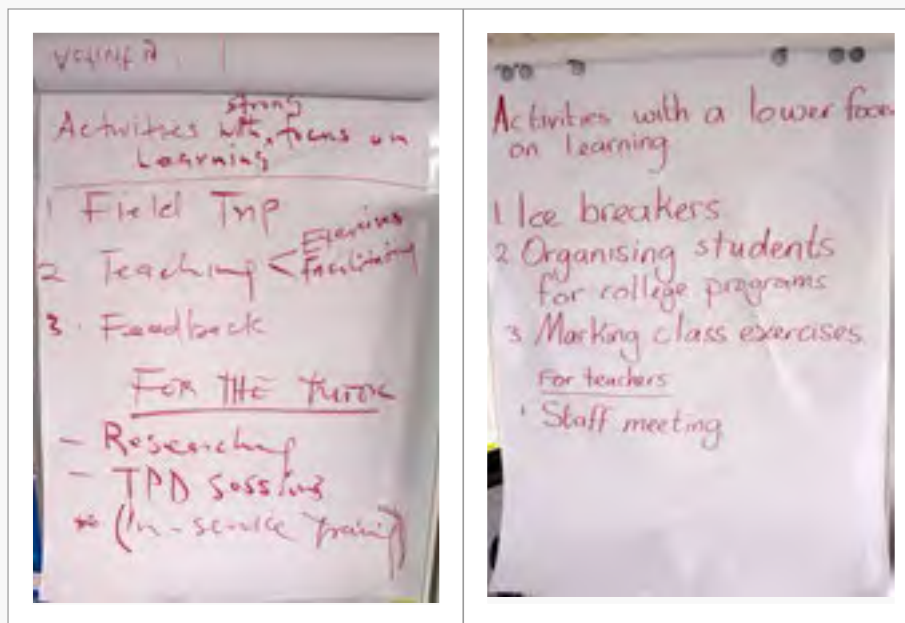 strong
Activities with focus on
Learning
1 Field Trip
2 Teaching < Exercises
Facilitating
3. Feedback
FOR THE TUTOR
- Researching
- TPD sessions
(In-service training)
Activities with a lower focus
on learning
1 Ice breakers
2 Organising students
for college programs
3 Marking class exercises
For teachers
1 Staff meeting